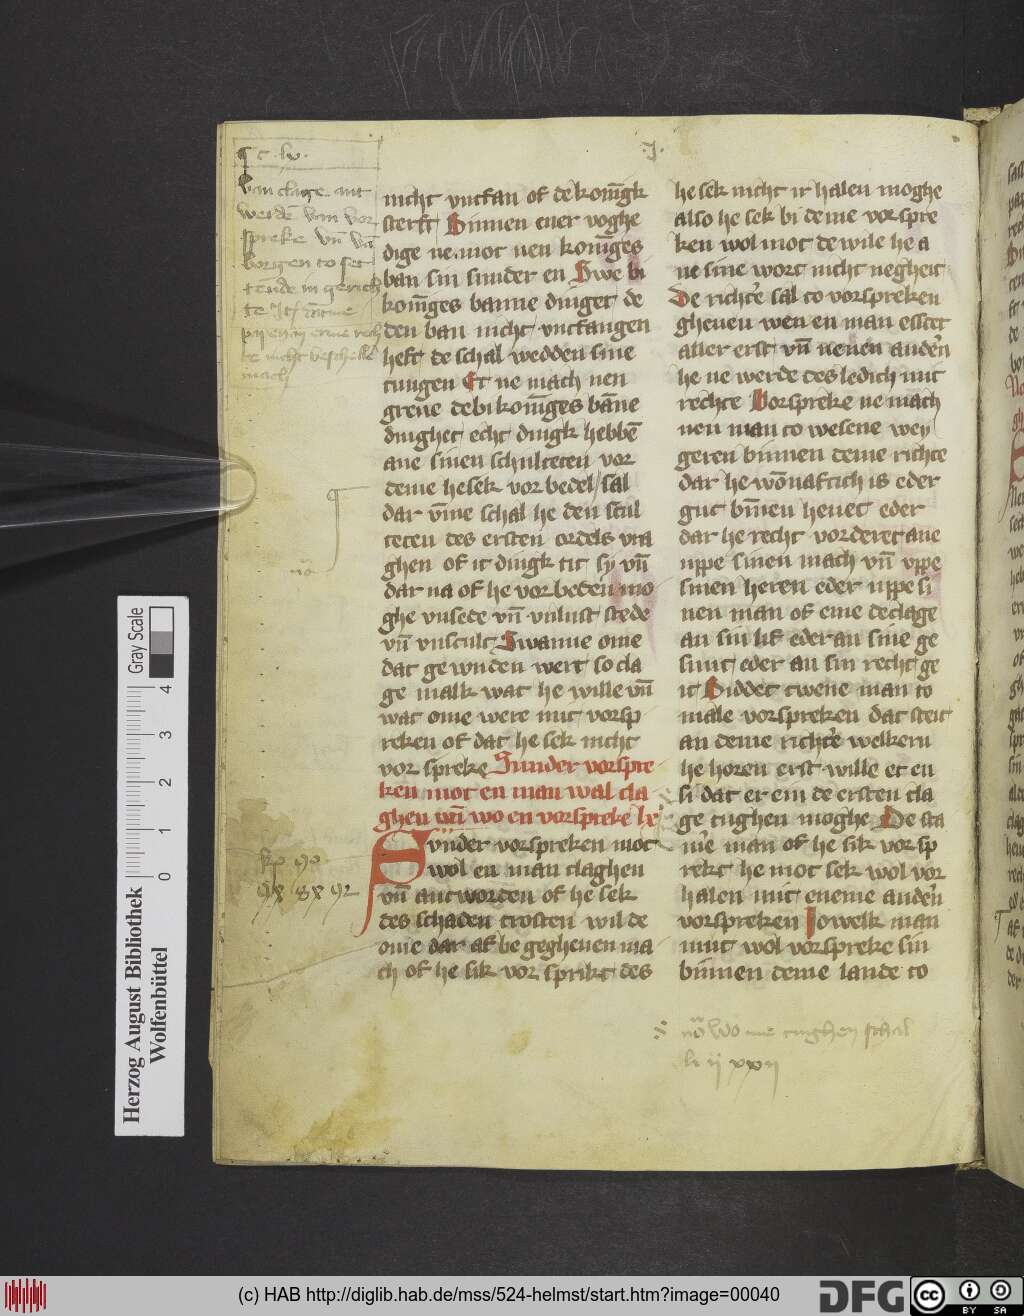 .J.
¶ c . lv .
van clage ant
werdē vnn vor
spreke vn̄ vā
borgen to set
tende in gerich
nicht vntfan of de konīgk
sterft Binnen ener voghe
dige ne mot nen konīges
ban sin sunder en Swe bi
konīges banne dinget de
den ban nicht vntfangen
heft de schal wedden sine
tungen Et ne mach nen
greue debi konīges bāne
dinghet echt dingk hebbē
ane sinen schulteten vor
deme he sek vor bedel sal
dar vm̄e schal he den scul
teten des ersten ordels vra
ghen of it dingk tit sy vn̄
dar na of he vor beden mo
ghe vnsede vn̄ vnlust stede
vn̄ vnscult Swanne ome
dat ge wnden wert so cla
ge malk wat he wille vn̄
wat ome were mit vorsp
reken of dat he sek nicht
vor spreke Sunder vorspre
ken mot en man wal cla
ghen vn̄ wo en vorspreke lx
Svnder vorspreken mot
wol en man claghen
vn̄ antworden of he sek
des schaden trosten wil de
ome dar af be gegheuen ma
ch of he sik vor sprikt des
he sek nicht ir halen moghe
also he sek bi deme vorspre
ken wol mot de wile he a
ne sine wort nicht negheit
De richte͛ sal to vorspreken
gheuen wen en man esscet
aller erst vn̄ nenenande͛n
he ne werde des ledich mit
rechte Vorspreke ne mach
nen man to wesene wey
geren binnen deme richte
dar he wōnaftich is eder
gut bīnen heuet eder
dar he recht vorderet ane
uppe sinen mach vn̄ vppe
sinen heren eder uppe si
nen man of eme de clage
an sin lif eder an sine ge
sunt eder an sin recht ge
it Biddet twene man to
male vorspreken dat steit
an deme richte͛ welkern
he horen erst wille et en
si dat er ein de ersten cla
ge tughen moghe De sta
me͛ man of he sik vor sp
rekt he mot sek wol vor
halen mit eneme ande͛n
vorspreken Iowelk man
mut wol vorspreke sin
binnen deme lande to
nō wo me tughen schal
li ij xxij
Gray Scale
0 1 2 3 4
Herzog August Bibliothek
Wolfenbüttel
(c) HAB http://diglib.hab.de/mss/524-helmst/start.htm?image=00040
DFG
cc
BY SA